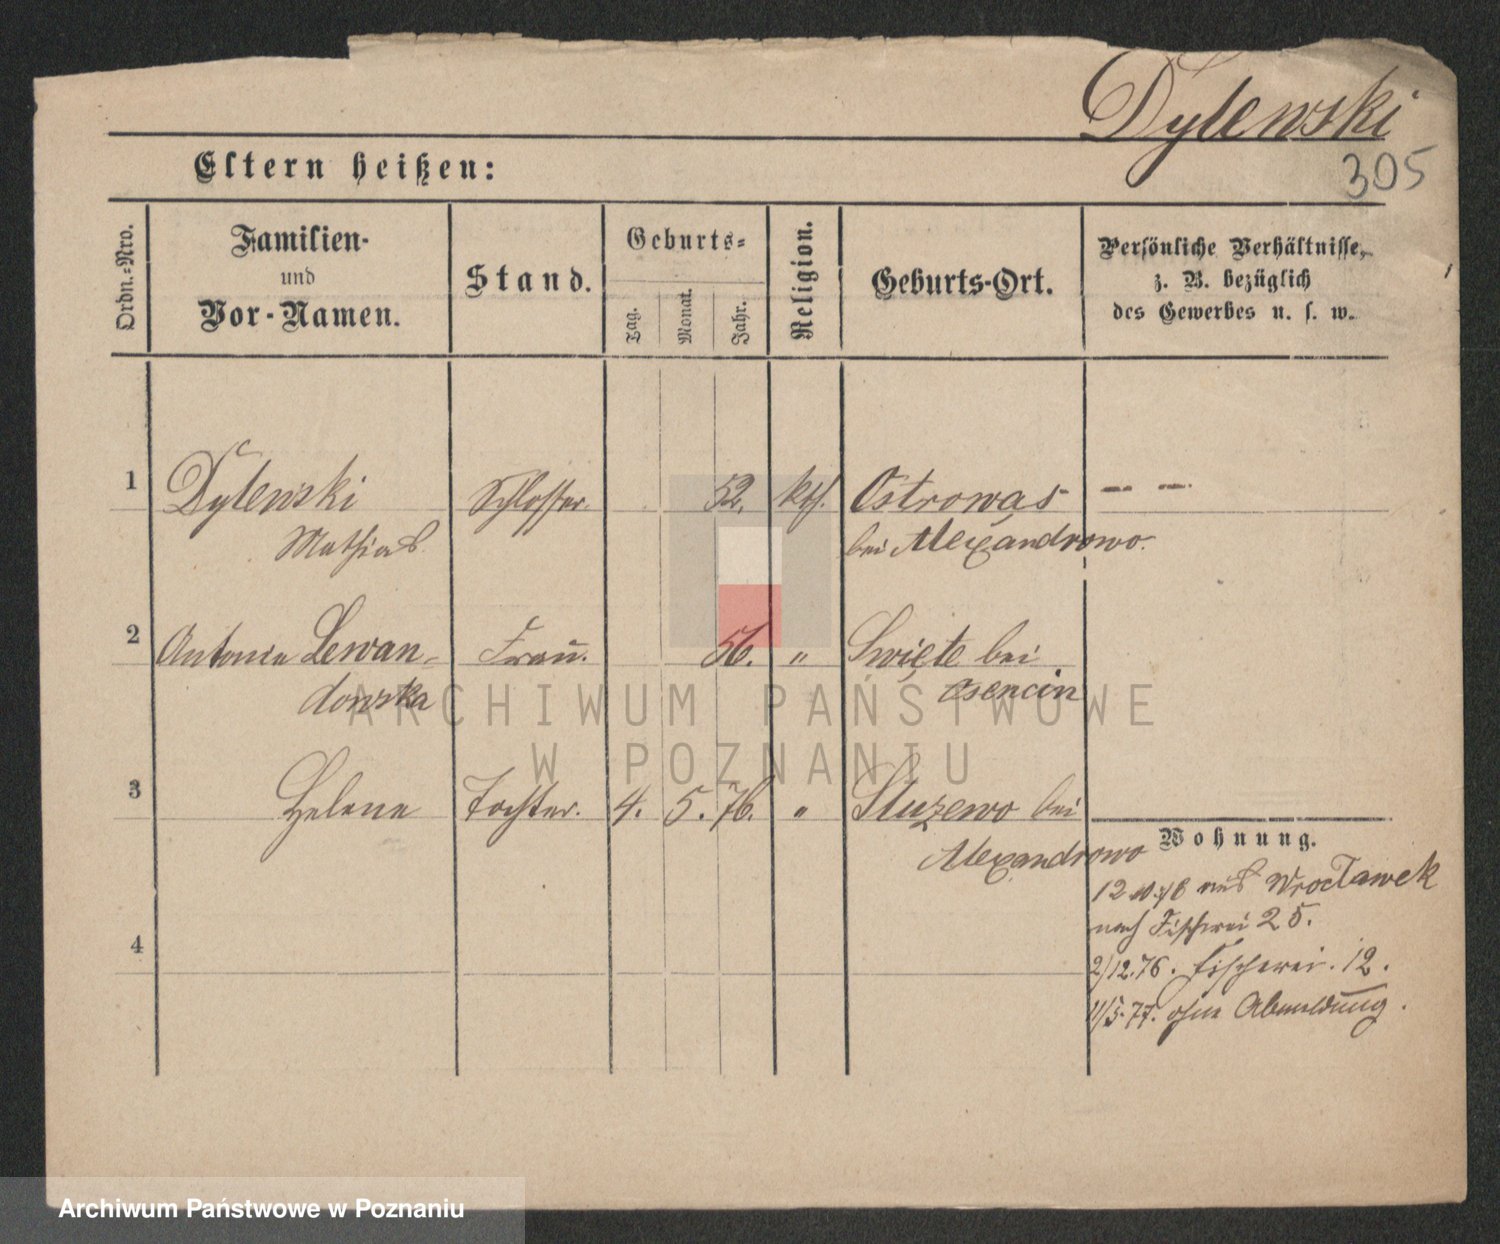 Dylewski
305
Eltern heißen:
Ordn.-Nro.
Familien-
und
Vor-Namen.
Stand.
Geburts-
Tag.
Monat.
Jahr.
Religion.
Geburts-Ort.
Persönliche Verhältnisse,
z. B. bezüglich
des Gewerbes u. s. w.
1 Dylewski Schlosser. 52. kth. Ostrowas — —
Mathias bei Alexandrowo.
2 Antonie Lewan- Frau. 56. " Swięte bei
dowska Osencin
3 Helene Tochter. 4. 5. 76. " Słuzewo bei
Alexandrowo
Wohnung.
12 10.76 aus Wrocławek
nach Fischerei 25.
4
2/12.76. Fischerei. 12.
11/5.77. ohne Abmeldung.
ARCHIWUM PAŃSTWOWE
W POZNANIU
Archiwum Państwowe w Poznaniu